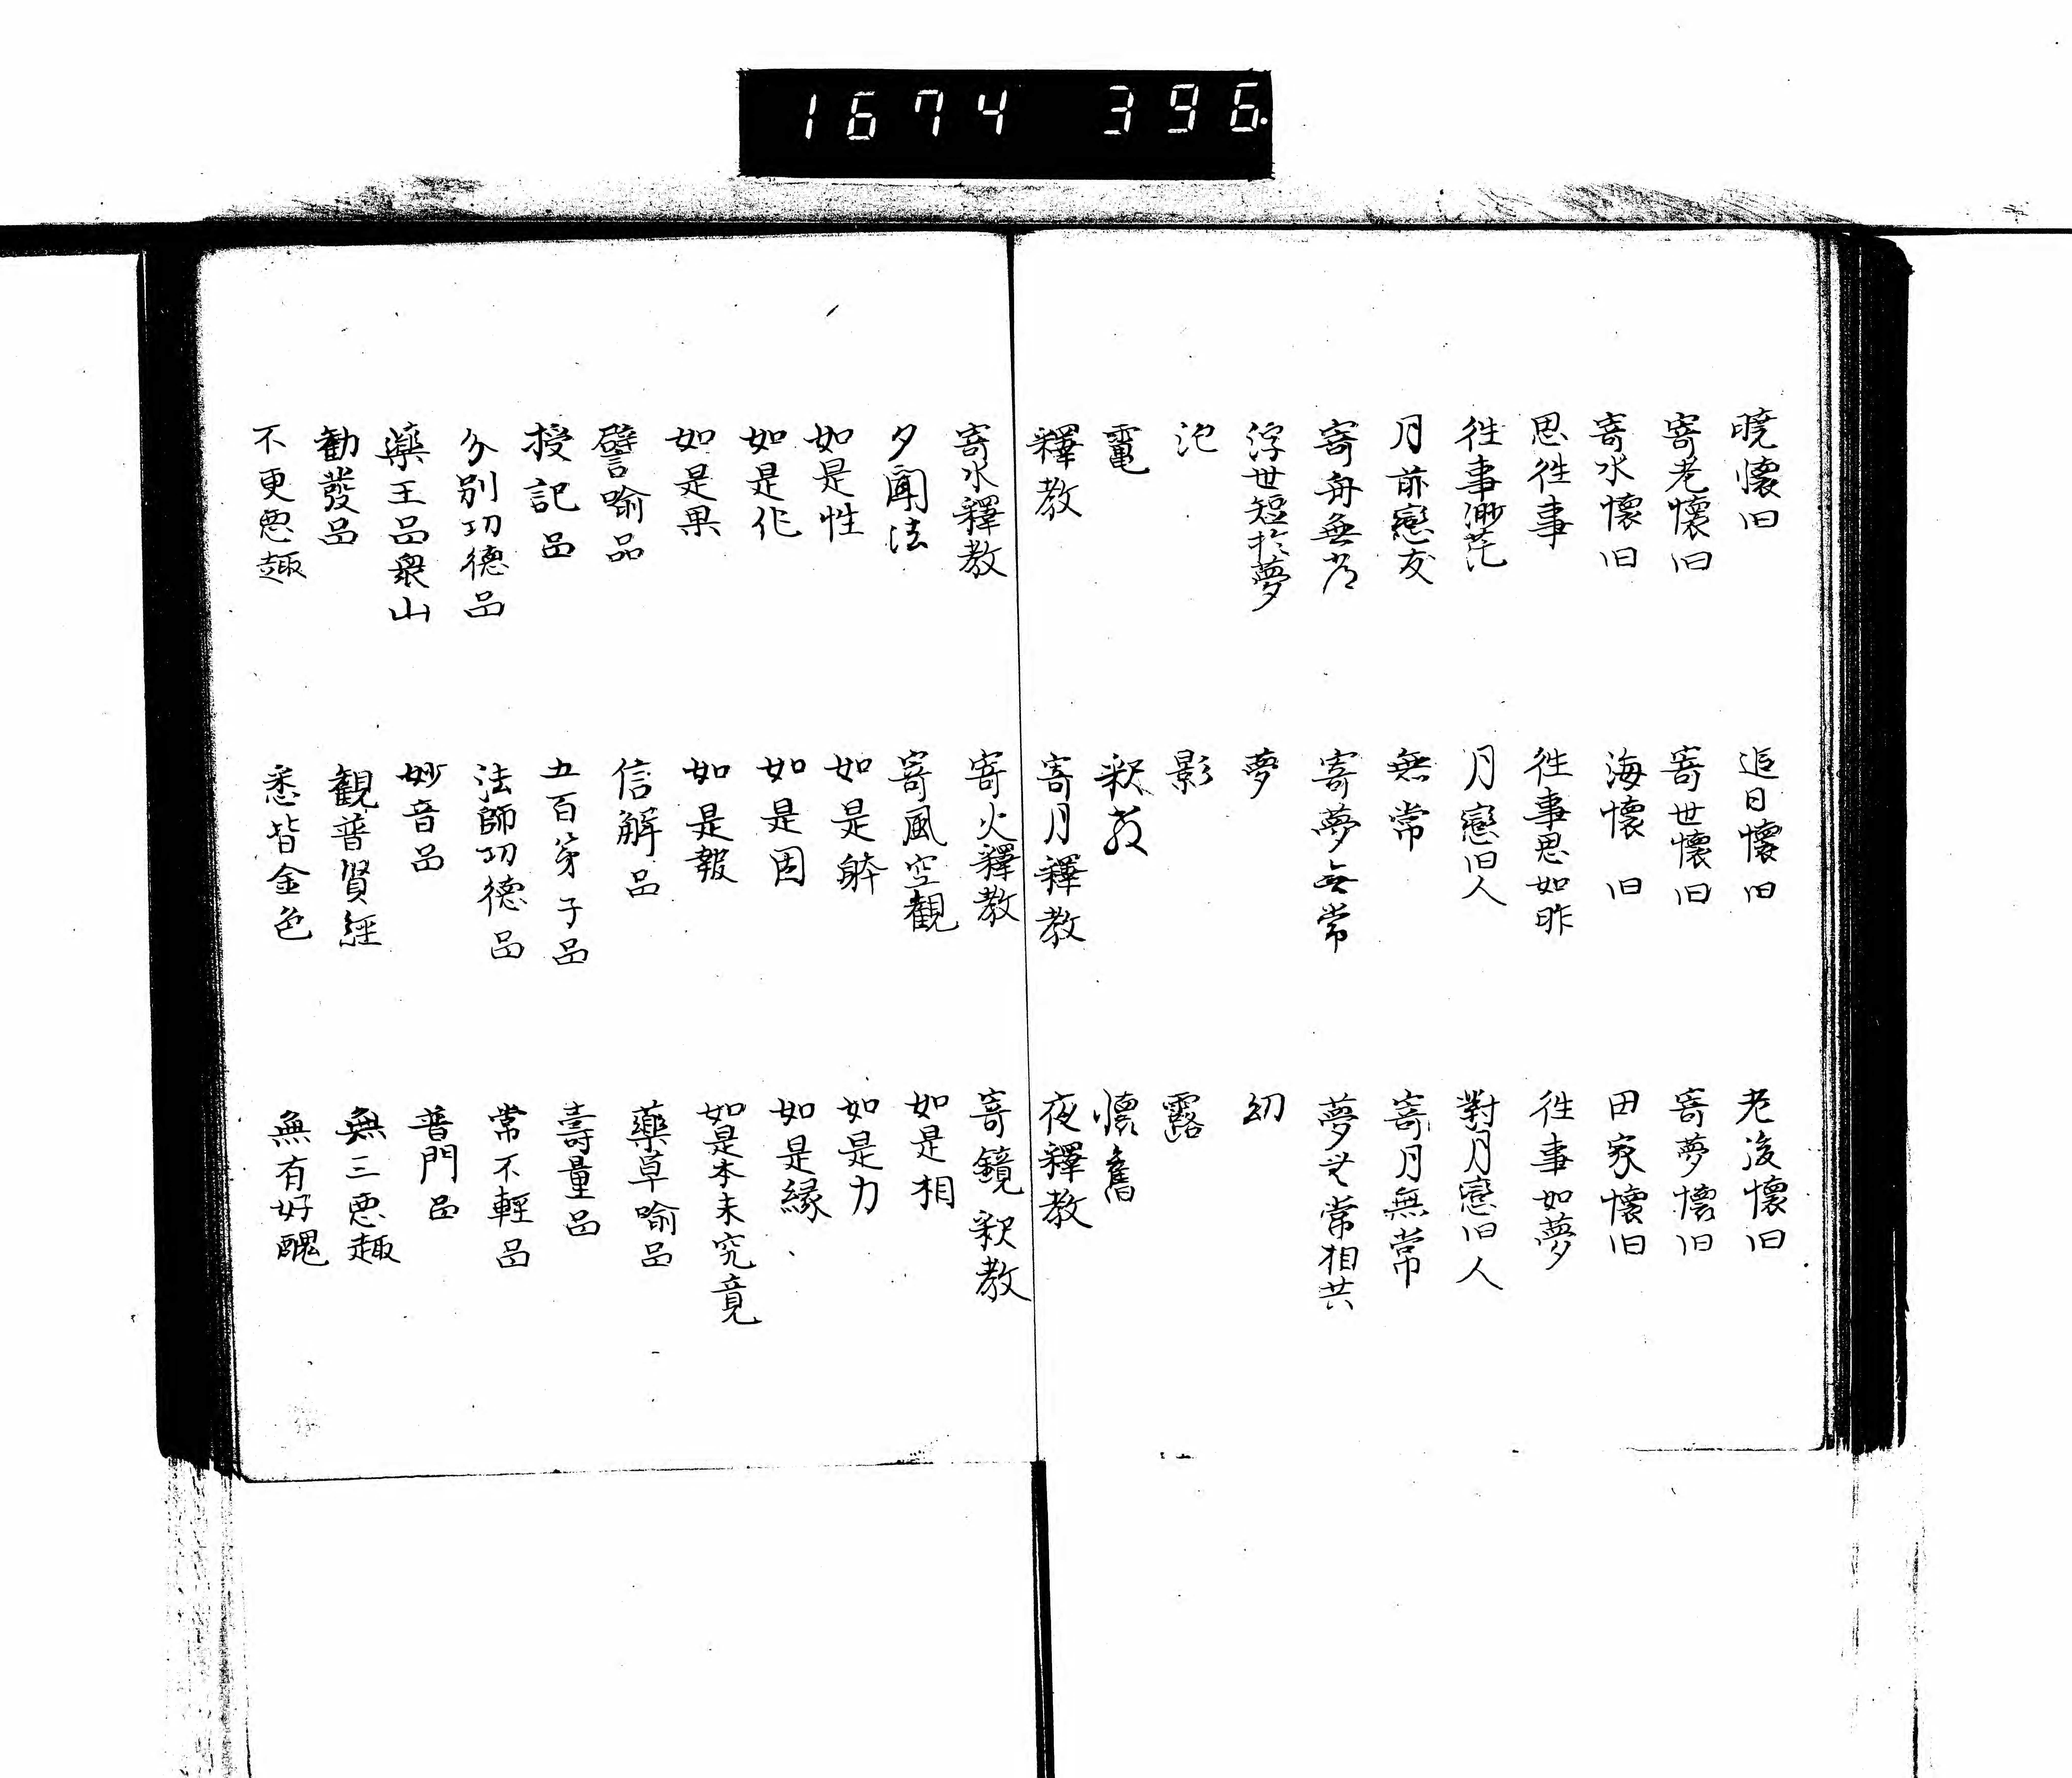 1674 396.
暁懐旧 追日懐旧 老後懐旧
寄老懐旧 寄世懐旧 寄夢懐旧
寄水懐旧 海懐旧 田家懐旧
思往事 往事思如昨 往事如夢
往事渺茫 月恋旧人 對月恋旧人
月前戀友 無常 寄月無常
寄舟無常 寄夢無常 夢無常相共
浮世短於夢 夢 幻
泡 影 露
電 釈教 懐舊
釋教 寄月釋教 夜釋教
寄水釋教 寄火釋教 寄鏡釈教
夕聞法 寄風空観 如是相
如是性 如是躰 如是力
如是作 如是因 如是縁
如是果 如是報 如是本末究竟
譬喻品 信解品 藥草喻品
授記品 五百弟子品 壽量品
分別功德品 法師功德品 常不輕品
藥王品衆山 妙音品 普門品
勧發品 観普賢經 無三悪趣
不更悪趣 悉皆金色 無有好醜